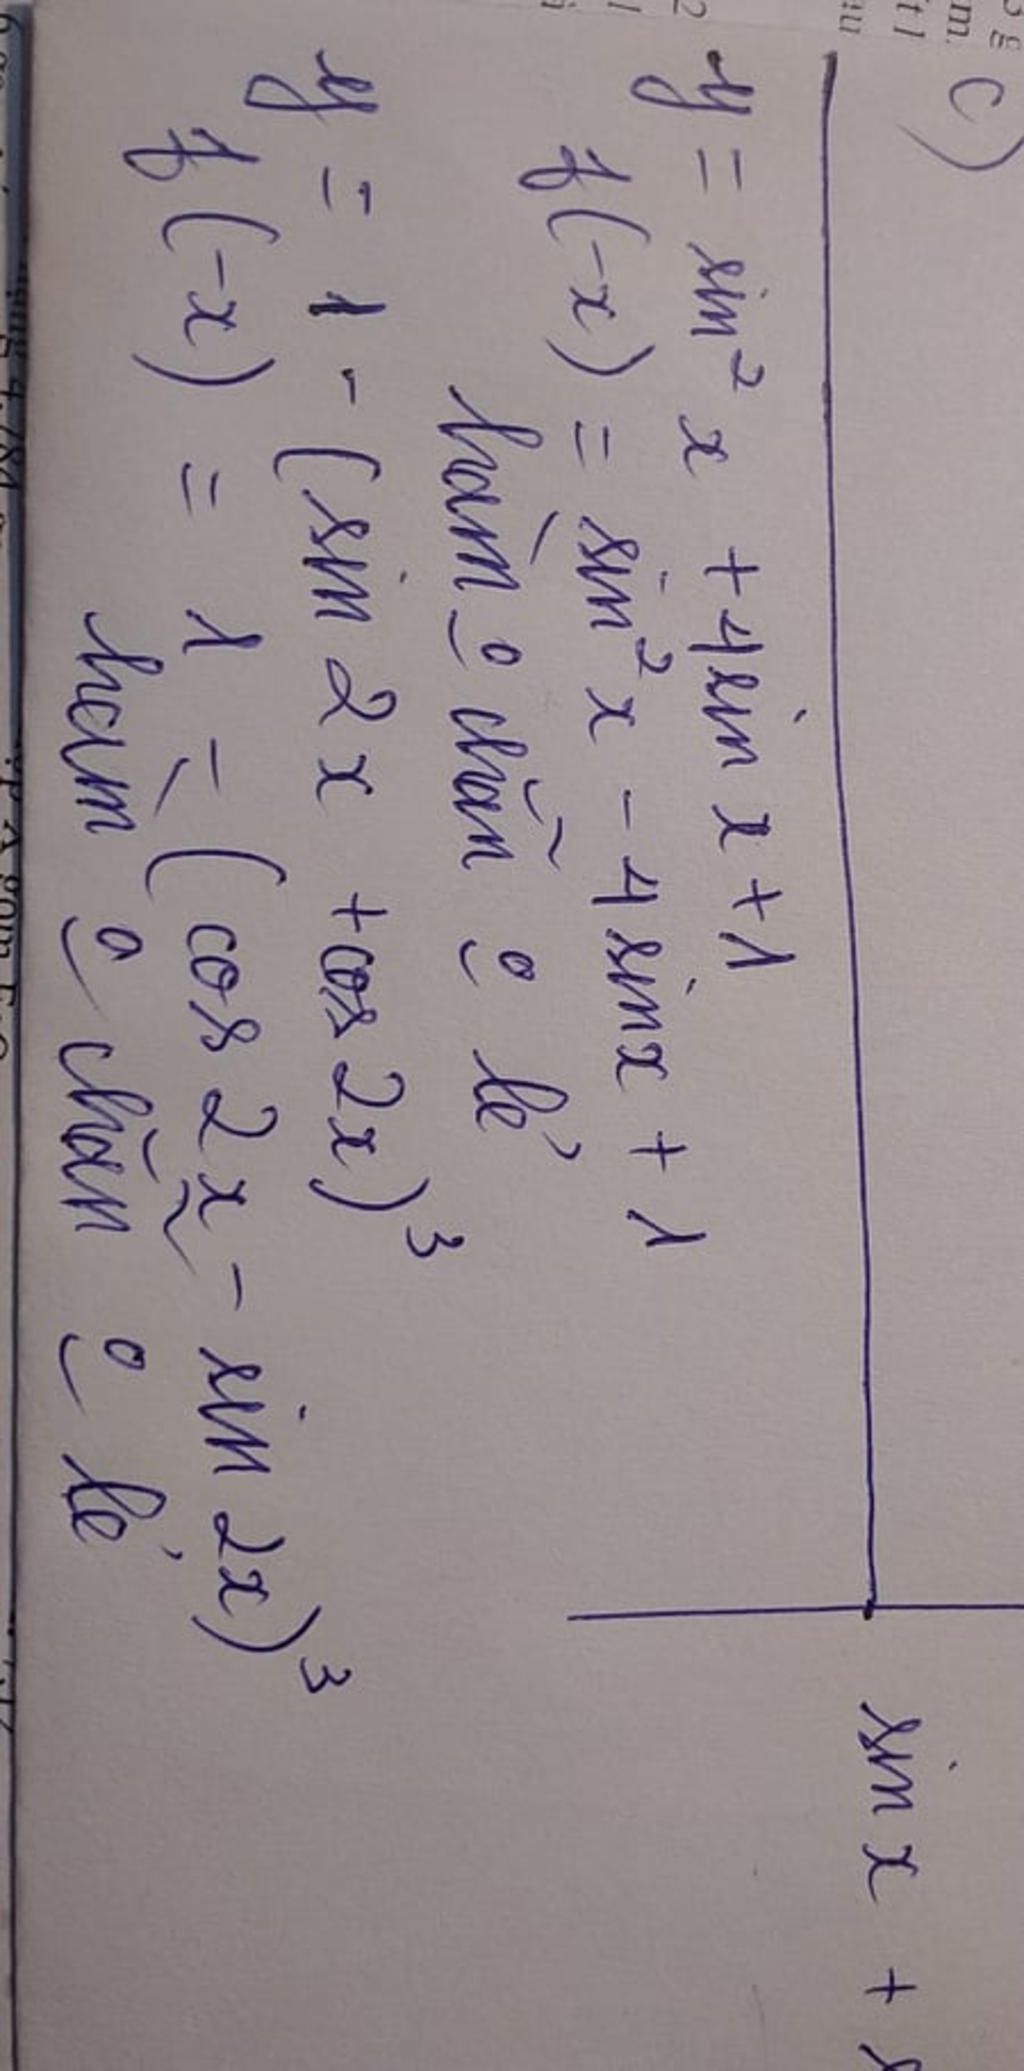 c)
sin x +
y = sin² x + 4sin x + 1
f(-x) = sin² x - 4 sinx + 1
hàm o chẵn o lẻ
y = 1 - (sin 2x + cos 2x)³
f(-x) = 1 - (cos 2x - sin 2x)³
hàm o chẵn o lẻ